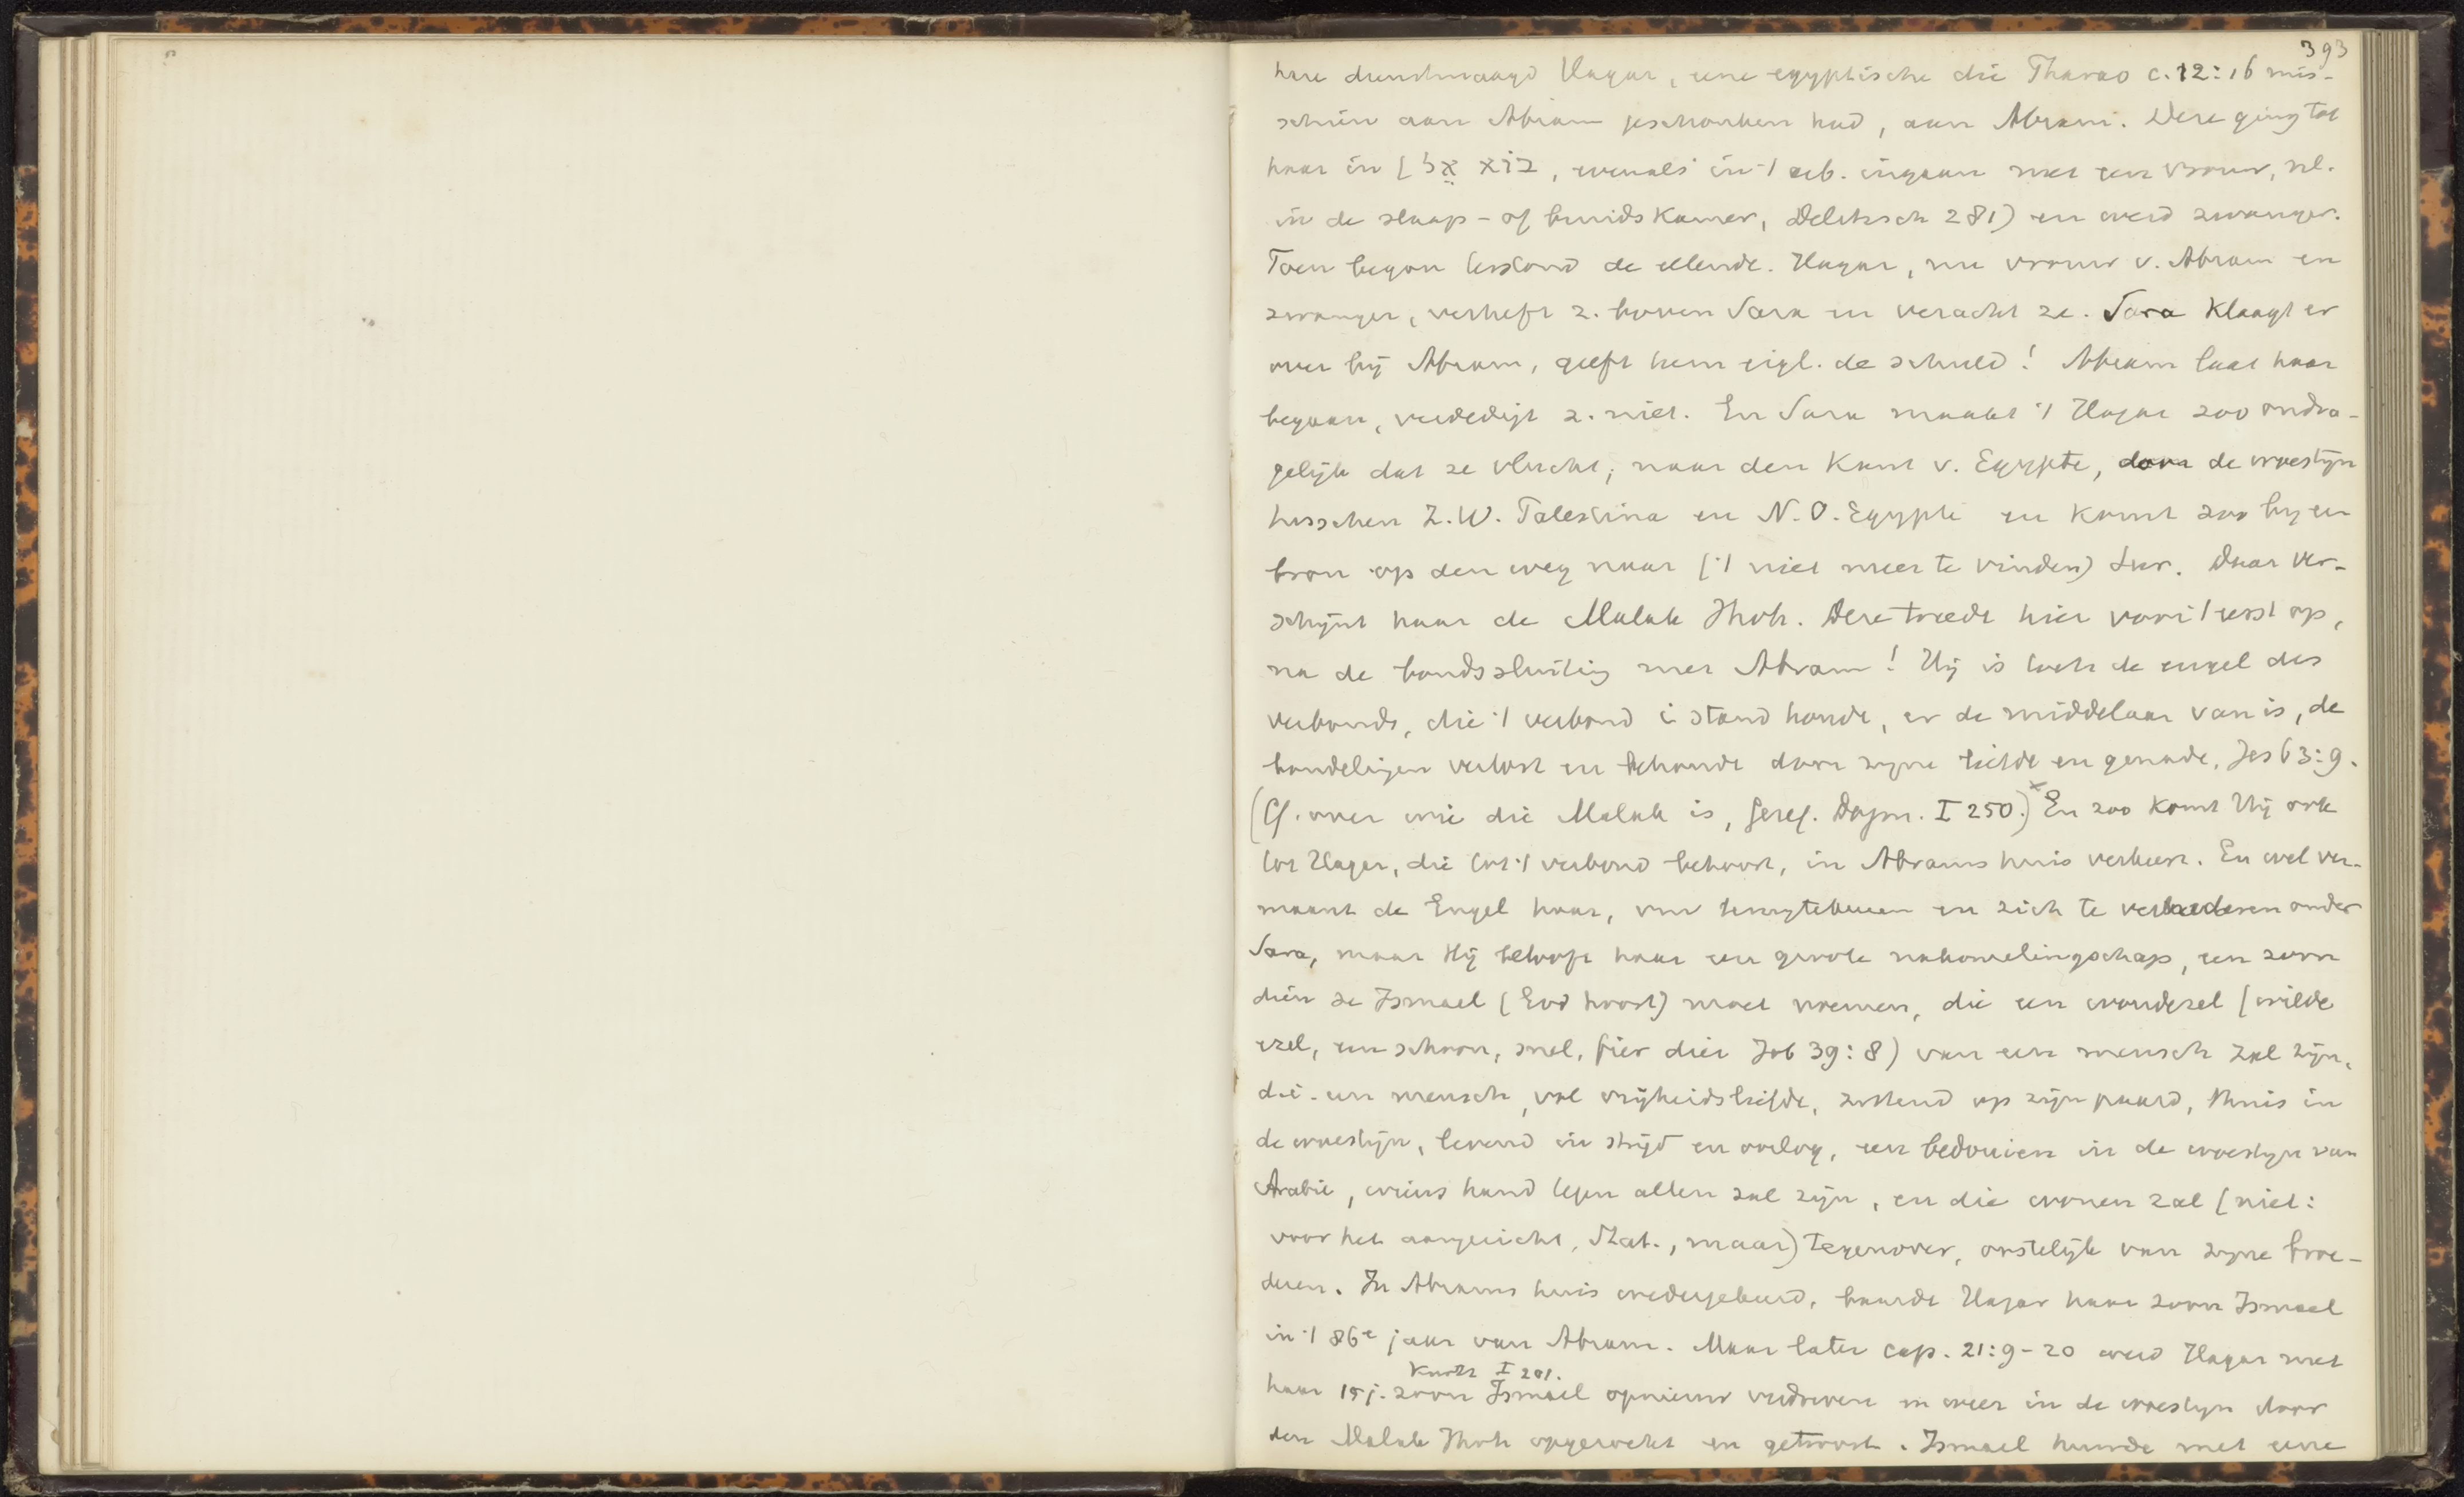 393
hare dienstmaagd Hagar, eene egyptische die Pharao c. 12:16 mis-
schien aan Abram geschonken had, aan Abram. Deze ging tot
haar in (בֹּא אֶל, evenals in 't arb. ingaan met een vrouw, nl.
in de slaap- of bruidskamer, Delitzsch 281) en werd zwanger.
Toen begon terstond de ellende. Hagar, nu vrouw v. Abram en
zwanger, verheft z. boven Sara en veracht ze. Sara klaagt er
over bij Abram, geeft hem eigl. de schuld! Abram laat haar
begaan, verdedigt z. niet. En Sara maakt 't Hagar zoo ondra-
gelijk dat ze vlucht, naar den kant v. Egypte, door de woestijn
tusschen Z.W. Palestina en N.O. Egypte en komt zoo by en
bron op den weg naar ('t niet meer te vinden) Sur. Daar ver-
schijnt haar de Malak Jhvh. Deze treedt hier voor 't eerst op,
na de bondssluiting met Abram! Hij is toch de engel des
verbonds, die 't verbond i stand houdt, er de middelaar van is, de
bondelingen verlost en behoudt door zijne liefde en genade, Jes 63:9.
(Cf. over wie die Malak is, Geref. Dogm. I 250.)x En zoo komt Hij ook
tot Hagar, die tot 't verbond behoort, in Abrams huis verkeert. En wel ver-
maant de Engel haar, om terugtekeeren en zich te vernederen onder
Sara, maar Hij belooft haar een groote nakomelingschap, een zoon
dien ze Ismael (God hoort) moet noemen, die een woudezel (wilde
ezel, een schoon, snel, fier dier Job 39:8) van een mensch zal zijn,
d.i. een mensch, vol vrijheidsliefde, zittend op zijn paard, thuis in
de woestijn, levend in strijd en oorlog, een bedouien in de woestijn van
Arabië, wiens hand tegen allen zal zijn, en die wonen zal (niet:
voor het aangezicht, Stat., maar) tegenover, oostelijk van zijne broe-
deren. In Abrams huis wedergekeerd, baarde Hagar haar zoon Ismael
in 't 86e jaar van Abram. Maar later cap. 21:9-20 werd Hagar met
Kurtz I 201.
haar 15 j. zoon Ismael opnieuw verdreven en weer in de woestijn door
den Malak Jhvh opgezocht en getroost. Ismael huwde met eene